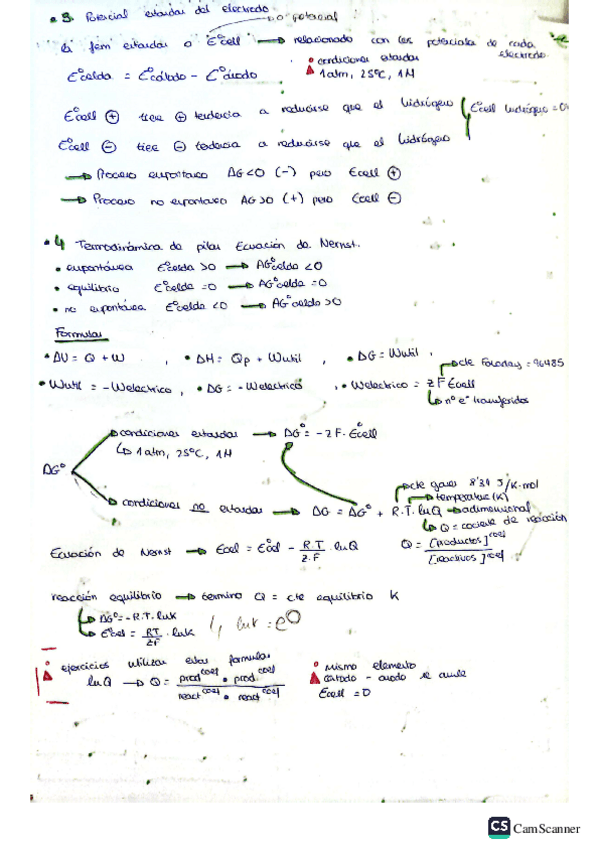 • 3. Potencial estandar del electrodo → o potencial
la fem estandar o E°cell → relacionado con los potenciales de cada electrodo
E°celda = E°cátodo - E°ánodo
condiciones estandar
1atm, 25°C, 1M
E°cell ⊕ tiene ⊕ tendencia a reducirse que el hidrógeno
E°cell ⊖ tiene ⊖ tendencia a reducirse que el hidrógeno
E°cell hidrógeno = 0
→ Proceso espontaneo ΔG<0 (-) pero Ecell ⊕
→ Proceso no espontaneo ΔG>0 (+) pero Ecell ⊖
• 4 Termodinámica de pilas Ecuación de Nernst.
• espontánea E°celda >0 → ΔG°celda <0
• equilibrio E°celda =0 → ΔG°celda =0
• no espontánea E°celda <0 → ΔG°celda >0
Formulas
• ΔU = Q + W , • ΔH = Qp + Wutil , • ΔG = Wutil .
→ cte Faraday = 96485
• Wutil = -Welectrico , • ΔG = -Welectrico , • Welectrico = zFEcell
↳ nº e⁻ transferidos
ΔG°
condiciones estandar → ΔG° = -zF·E°cell
↳ 1atm, 25°C, 1M
→ cte gases 8'31 J/K·mol
→ temperatura (K)
condiciones no estandar → ΔG = ΔG° + R.T.lnQ → adimensional
↳ Q = cociente de reacción
Ecuación de Nernst → Ecel = E°cel - R.T/z.F · lnQ
Q = [productos]^coef / [reactivos]^coef
reacción equilibrio → termino Q = cte equilibrio K
↳ ΔG° = -R.T.lnK
↳ E°cel = RT/zF · lnK
ejercicios utilizar estas formulas
lnQ → Q = prod^coef · prod^coef / react^coef · react^coef
Mismo elemento
cátodo - anodo se anula
Ecell = 0
CS CamScanner